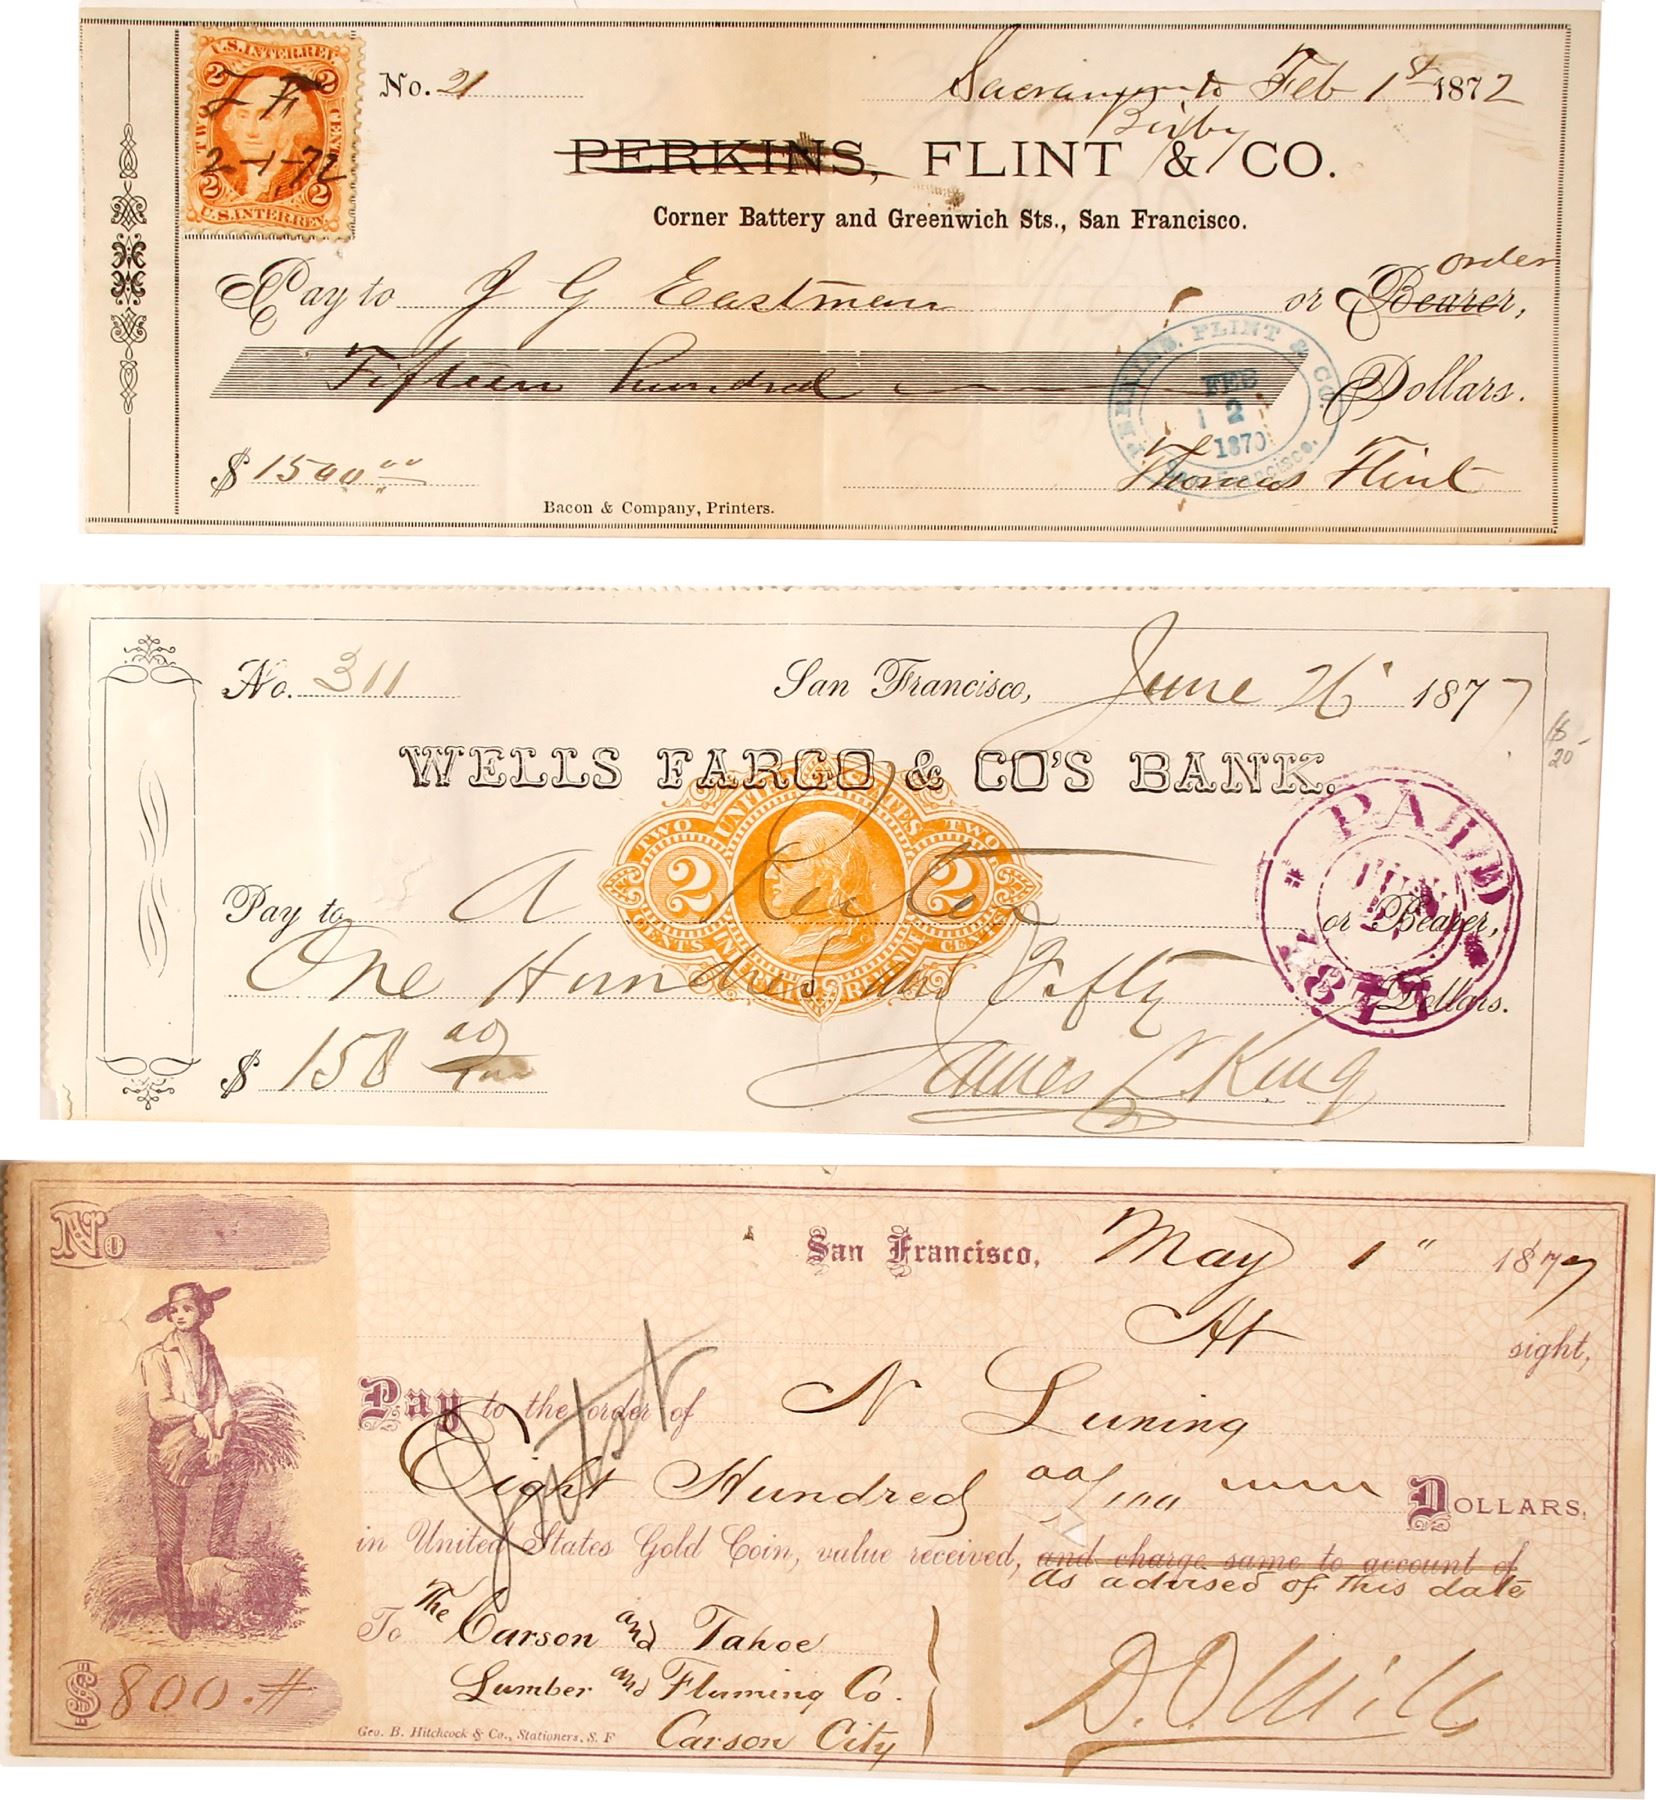 U.S. INTER. REV.
2 2
TWO CENTS
2 2
U.S. INTER. REV.
T F
2-1-72
No. 21 Sacramento Feb 1st 1872
Bixby
PERKINS, FLINT & CO.
Corner Battery and Greenwich Sts., San Francisco.
order
Pay to J G Eastman or Bearer,
Fifteen hundred Dollars.
PERKINS, FLINT & CO.
FEB
12
1870
San Francisco.
$ 1500 00 Thomas Flint
Bacon & Company, Printers.
No. 311 San Francisco, June 26 1877
18
20
WELLS FARGO & CO'S BANK.
UNITED STATES
TWO TWO
2 2
CENTS CENTS
INTERNAL REVENUE
PAID
JUN
1877
Pay to A or Bearer,
One Hundred and Fifty Dollars.
$ 150 00 James L King
No
San Francisco, May 1" 1877
At sight,
Pay to the order of N Luning
Eight Hundred 00/100 DOLLARS,
in United States Gold Coin, value received, and charge same to account of
as advised of this date
To The Carson and Tahoe
Lumber and Fluming Co.
Carson City
$ 800.#
D. O. Mills
Geo. B. Hitchcock & Co., Stationers, S. F